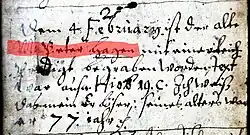 2
Dem 4. Februariÿ ist der alte
Peter Hagen mit einer leich
predigt begraben worden text
war auß Hiob 19. C. Ich weiß
das mein Erlöser: seines alters war
er 77 Jahr